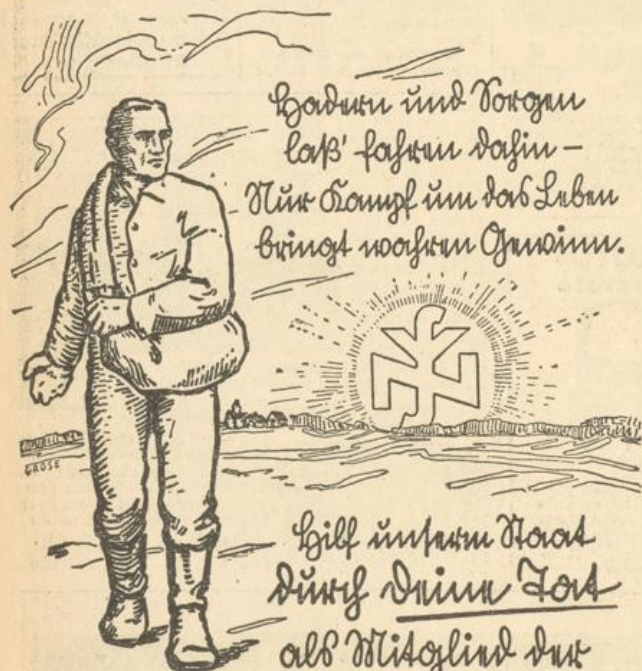 Hadern und Sorgen
laß' fahren dahin –
Nur Kampf um das Leben
bringt wahren Gewinn.
GROSE
Hilf unserm Staat
durch Deine Tat
als Mitglied der